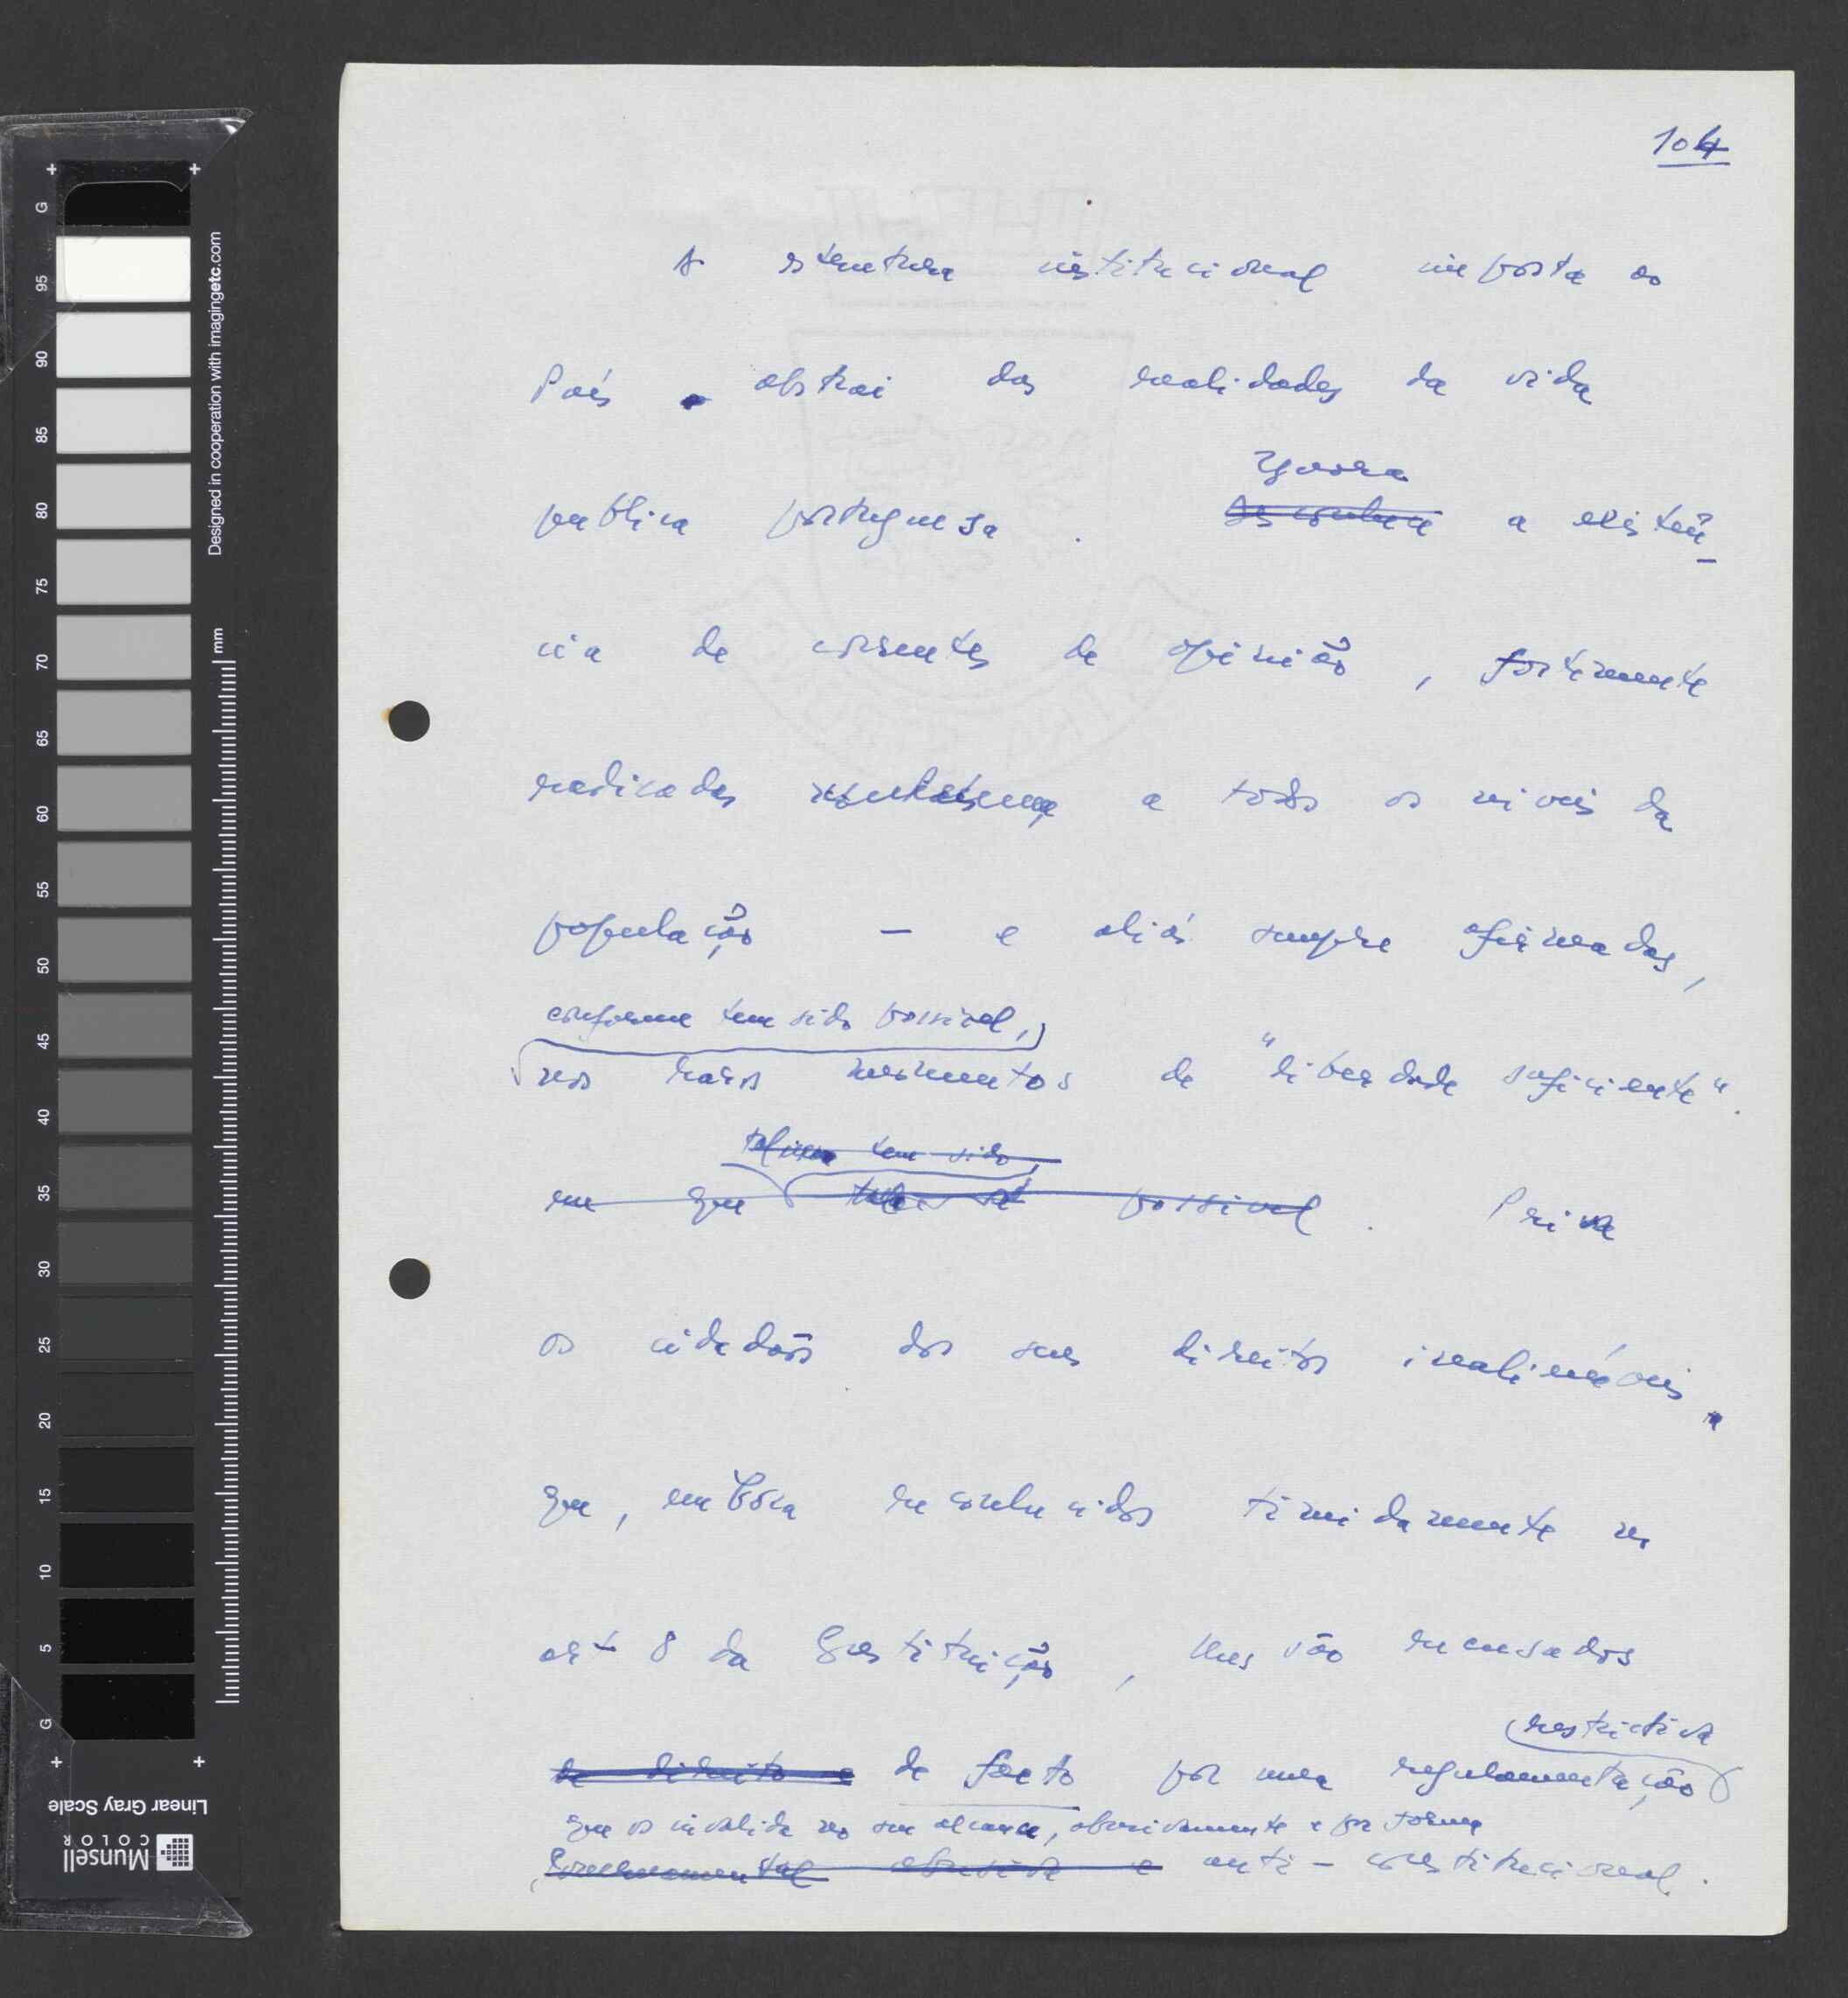 104
A estrutura institucional imposta ao
País abstrai das realidades da vida
pública portuguesa. Ignora
Desconhece a existên-
cia de correntes de opinião, fortemente
radicadas a todos os níveis da
população — e aliás sempre afirmadas,
conforme tem sido possível,
nos raros momentos de "liberdade suficiente".
tem sido,
em que possível. Priva
os cidadãos dos seus direitos inalienáveis,
que, embora reconhecidos timidamente no
artº 8 da Constituição, lhes são recusados
restrictiva
de direito e de facto por uma regulamentação
que os invalida no seu alcance, abusivamente e por forma
Governamental abusiva e anti-constitucional.
Designed in cooperation with imagingetc.com
mm
G
95
90
85
80
75
70
65
60
55
50
45
40
35
30
25
20
15
10
5
G
Linear Gray Scale
Munsell
COLOR